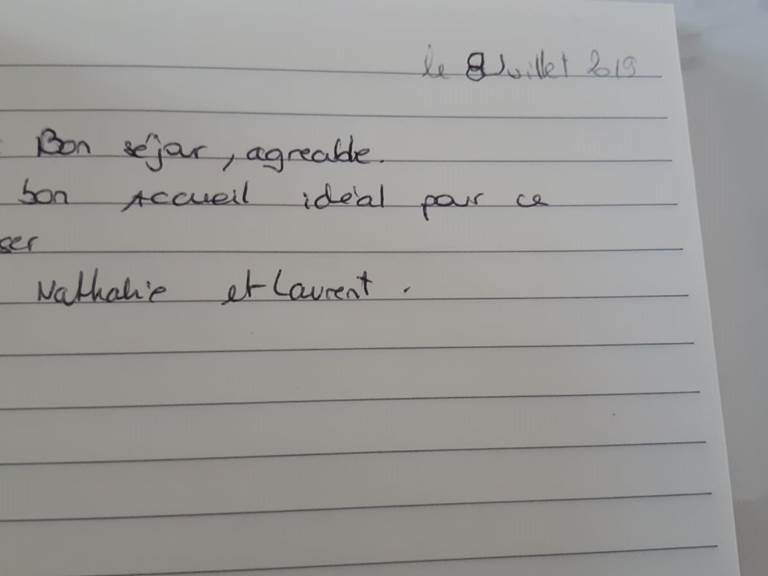 le 8 Juillet 2019
Bon séjour, agreable.
bon Accueil idéal pour ce
ser
Nathalie et Laurent.